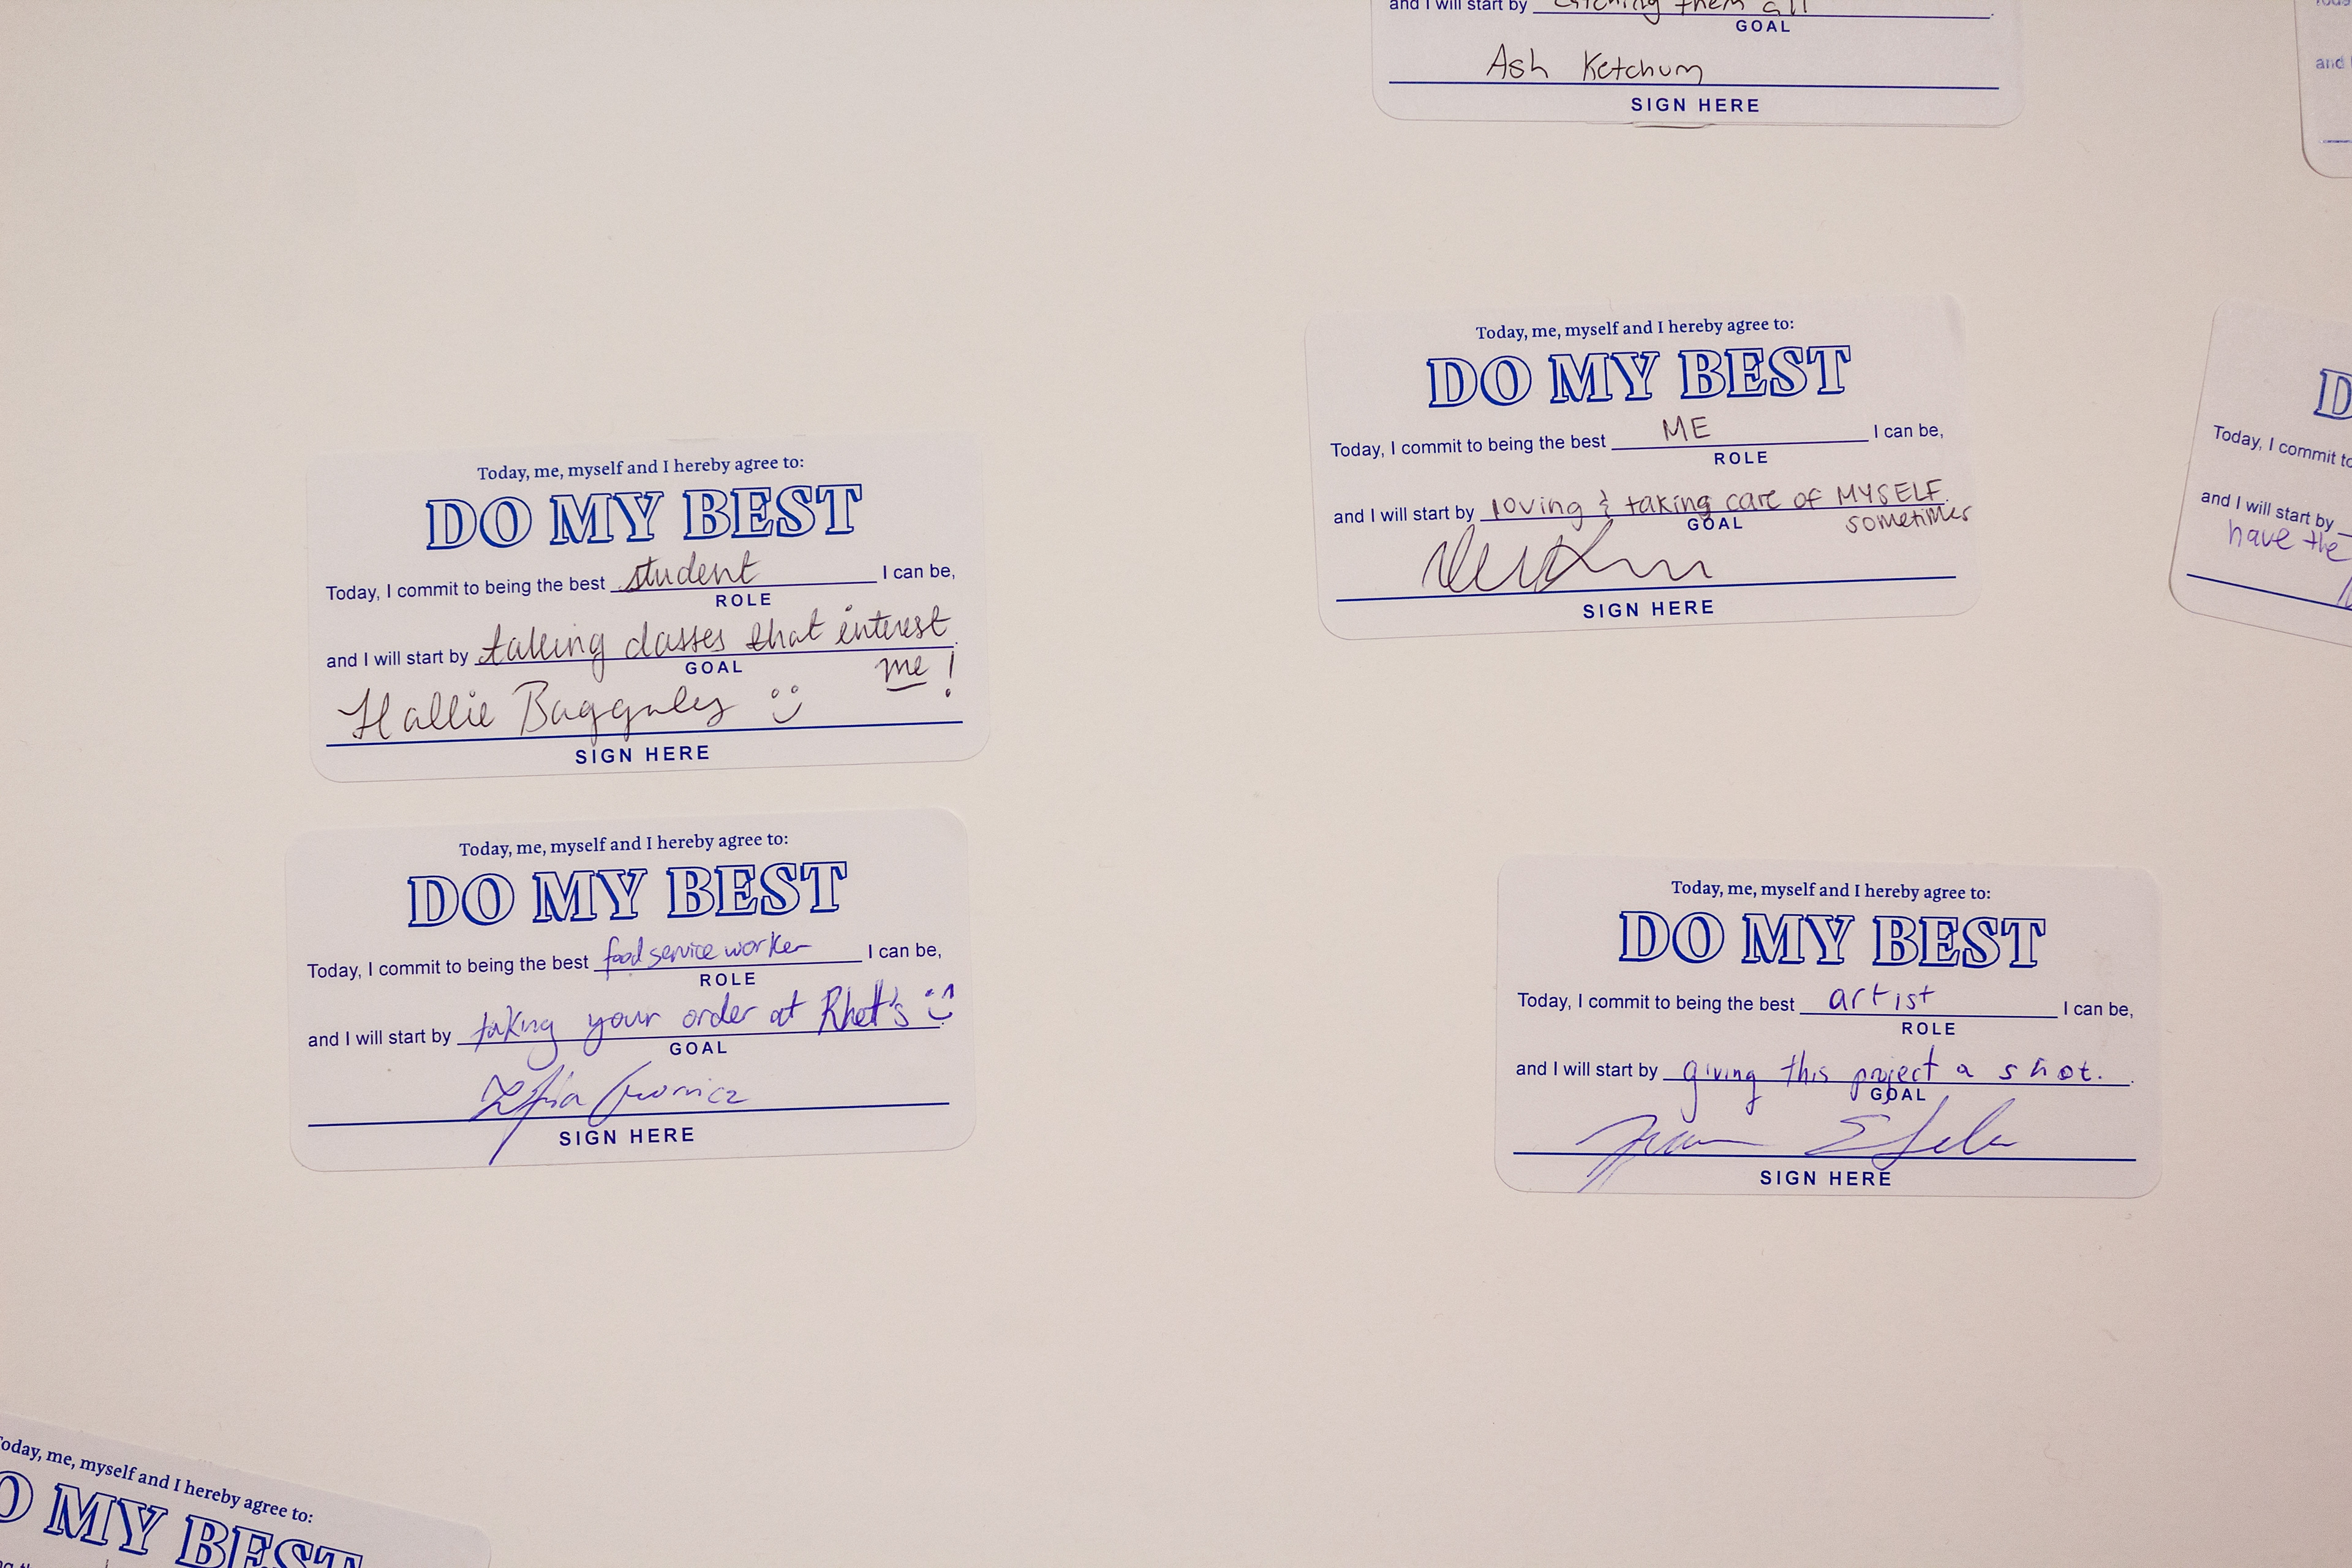 and I will start by catching them all.
GOAL
Ash Ketchum
SIGN HERE
and
Today, me, myself and I hereby agree to:
DO MY BEST
Today, I commit to being the best ME I can be,
ROLE
and I will start by loving & taking care of MYSELF.
GOAL
sometimes
SIGN HERE
Today, I commit to
and I will start by
have the
Today, me, myself and I hereby agree to:
DO MY BEST
Today, I commit to being the best student I can be,
ROLE
and I will start by taking classes that interest.
GOAL
me!
Hallie Bagguley
SIGN HERE
Today, me, myself and I hereby agree to:
DO MY BEST
Today, I commit to being the best food service worker I can be,
ROLE
and I will start by taking your order at Rhett's.
GOAL
SIGN HERE
Today, me, myself and I hereby agree to:
DO MY BEST
Today, I commit to being the best artist I can be,
ROLE
and I will start by giving this project a shot..
GOAL
SIGN HERE
Today, me, myself and I hereby agree to:
O MY BEST